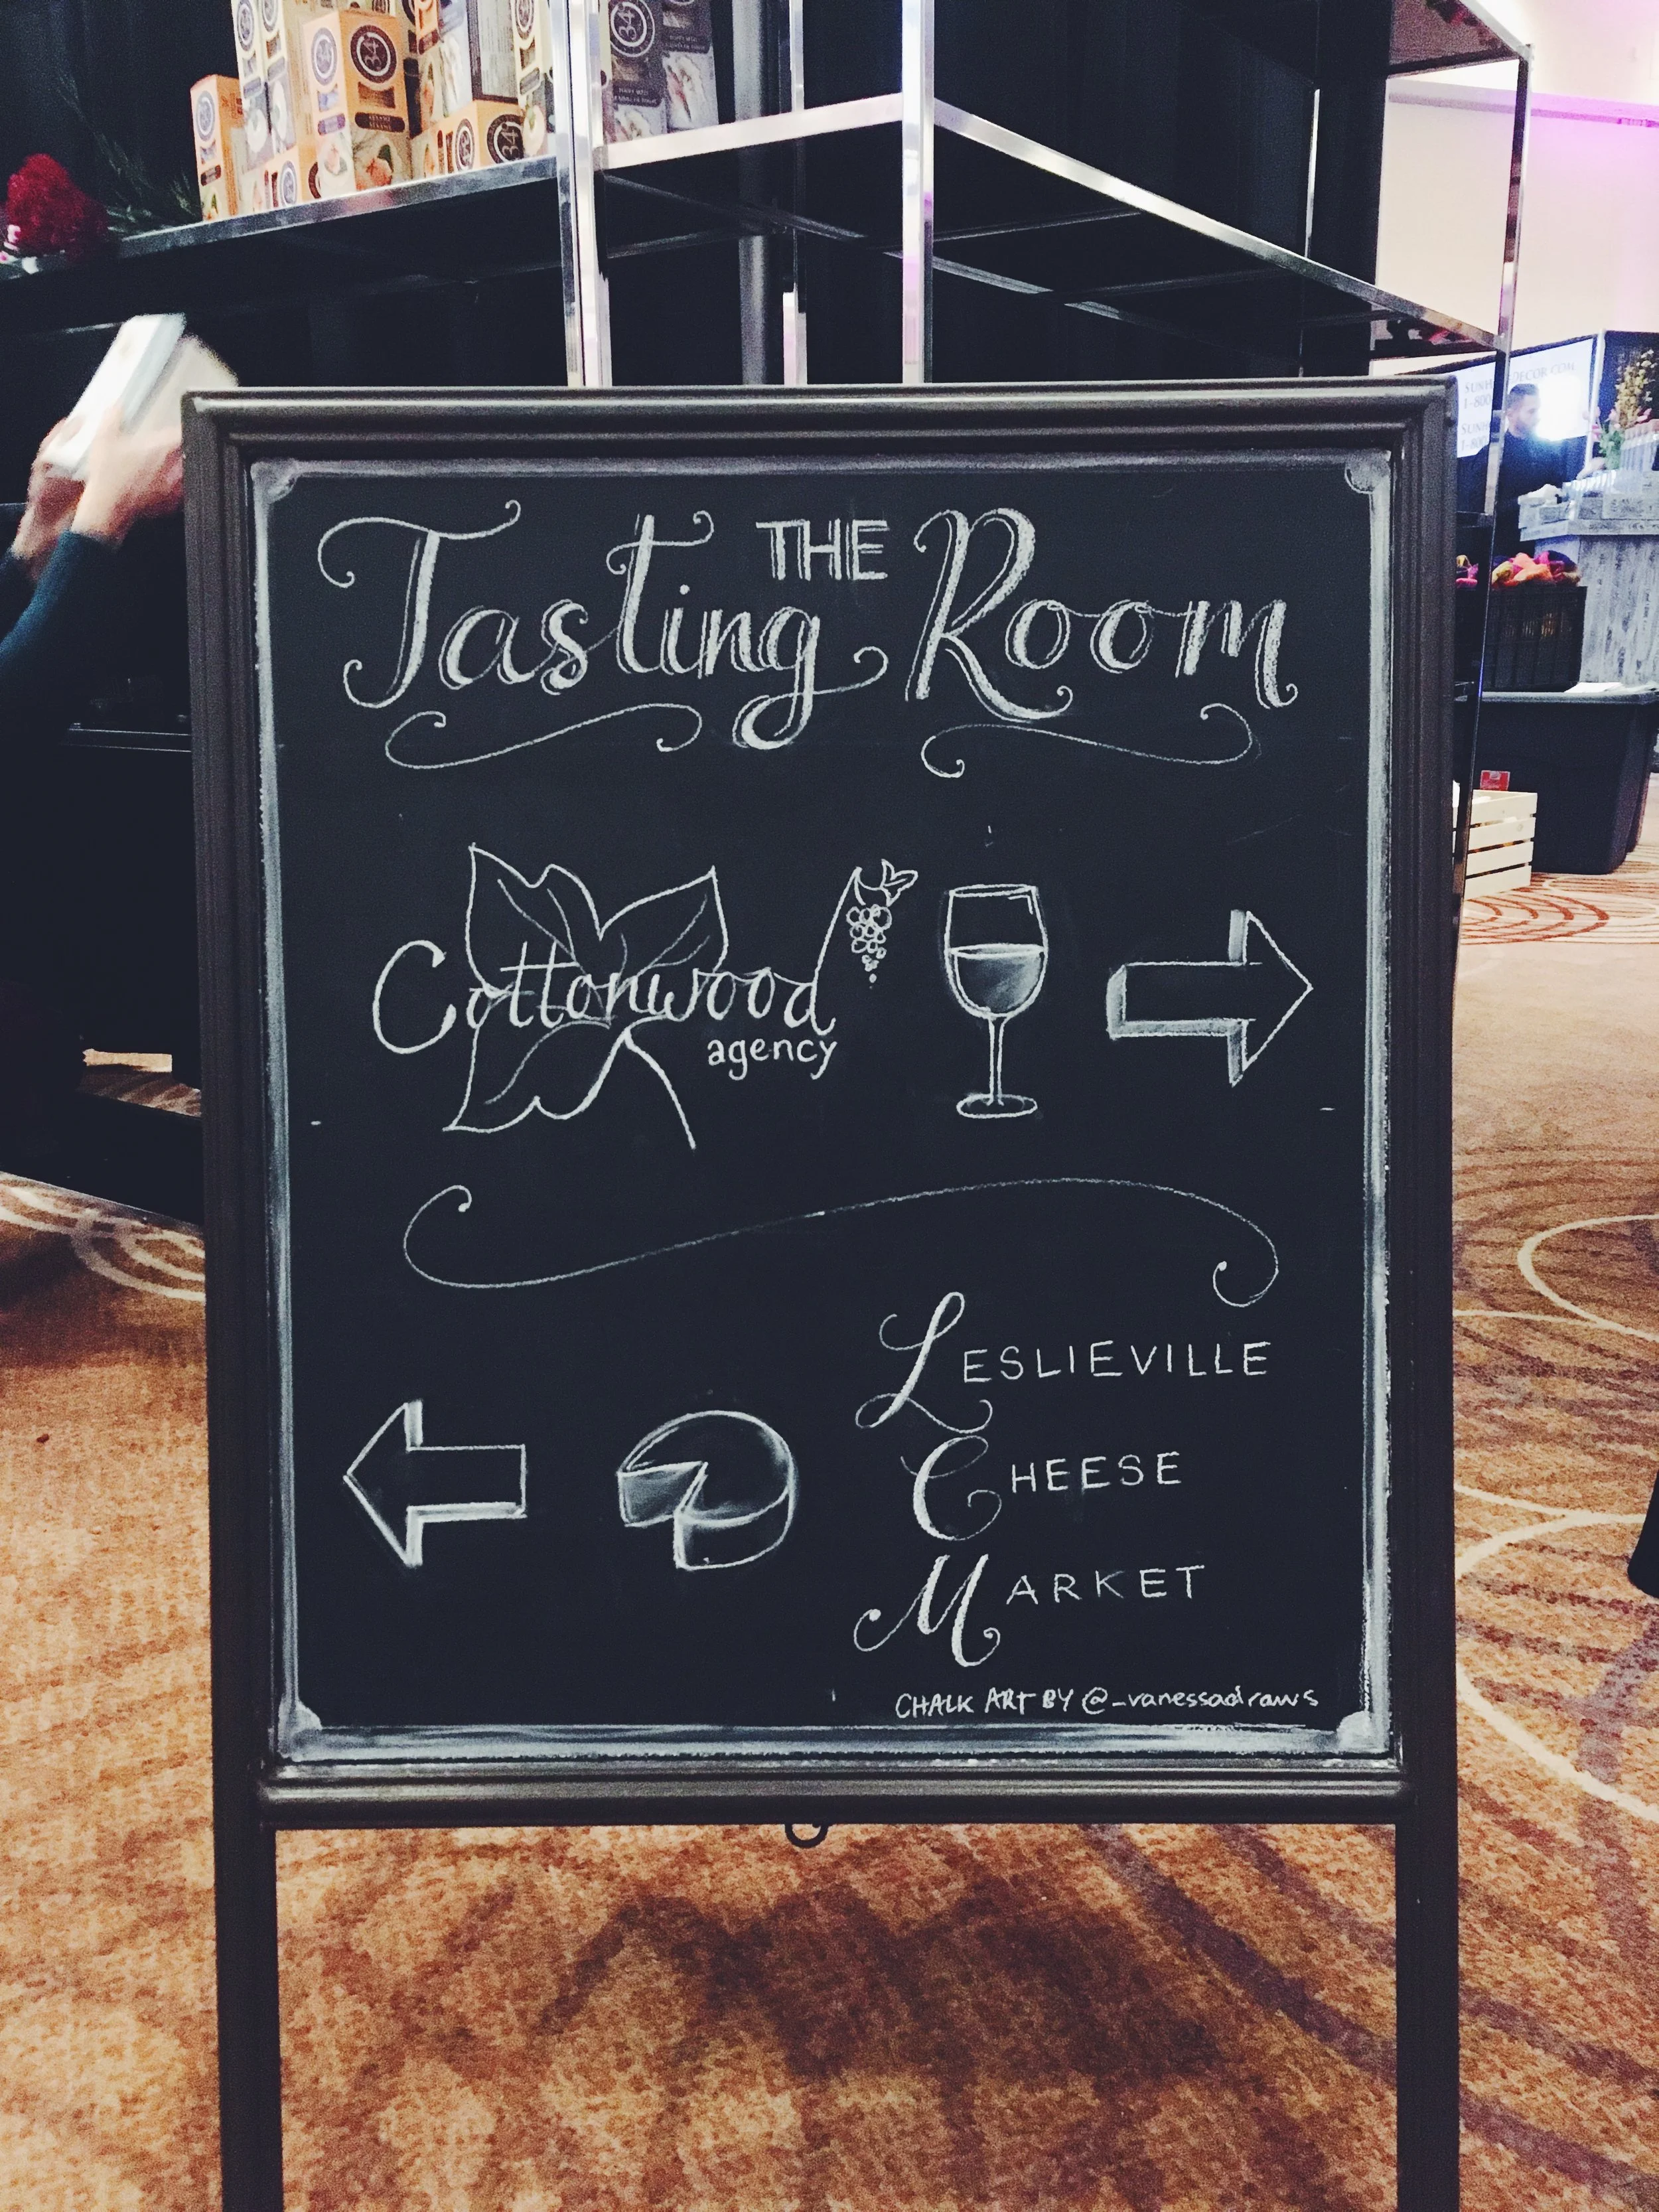 34
34
34
SESAME
34
THE
Tasting Room
Cottonwood
agency
LESLIEVILLE
CHEESE
MARKET
CHALK ART BY @_vanessadraws